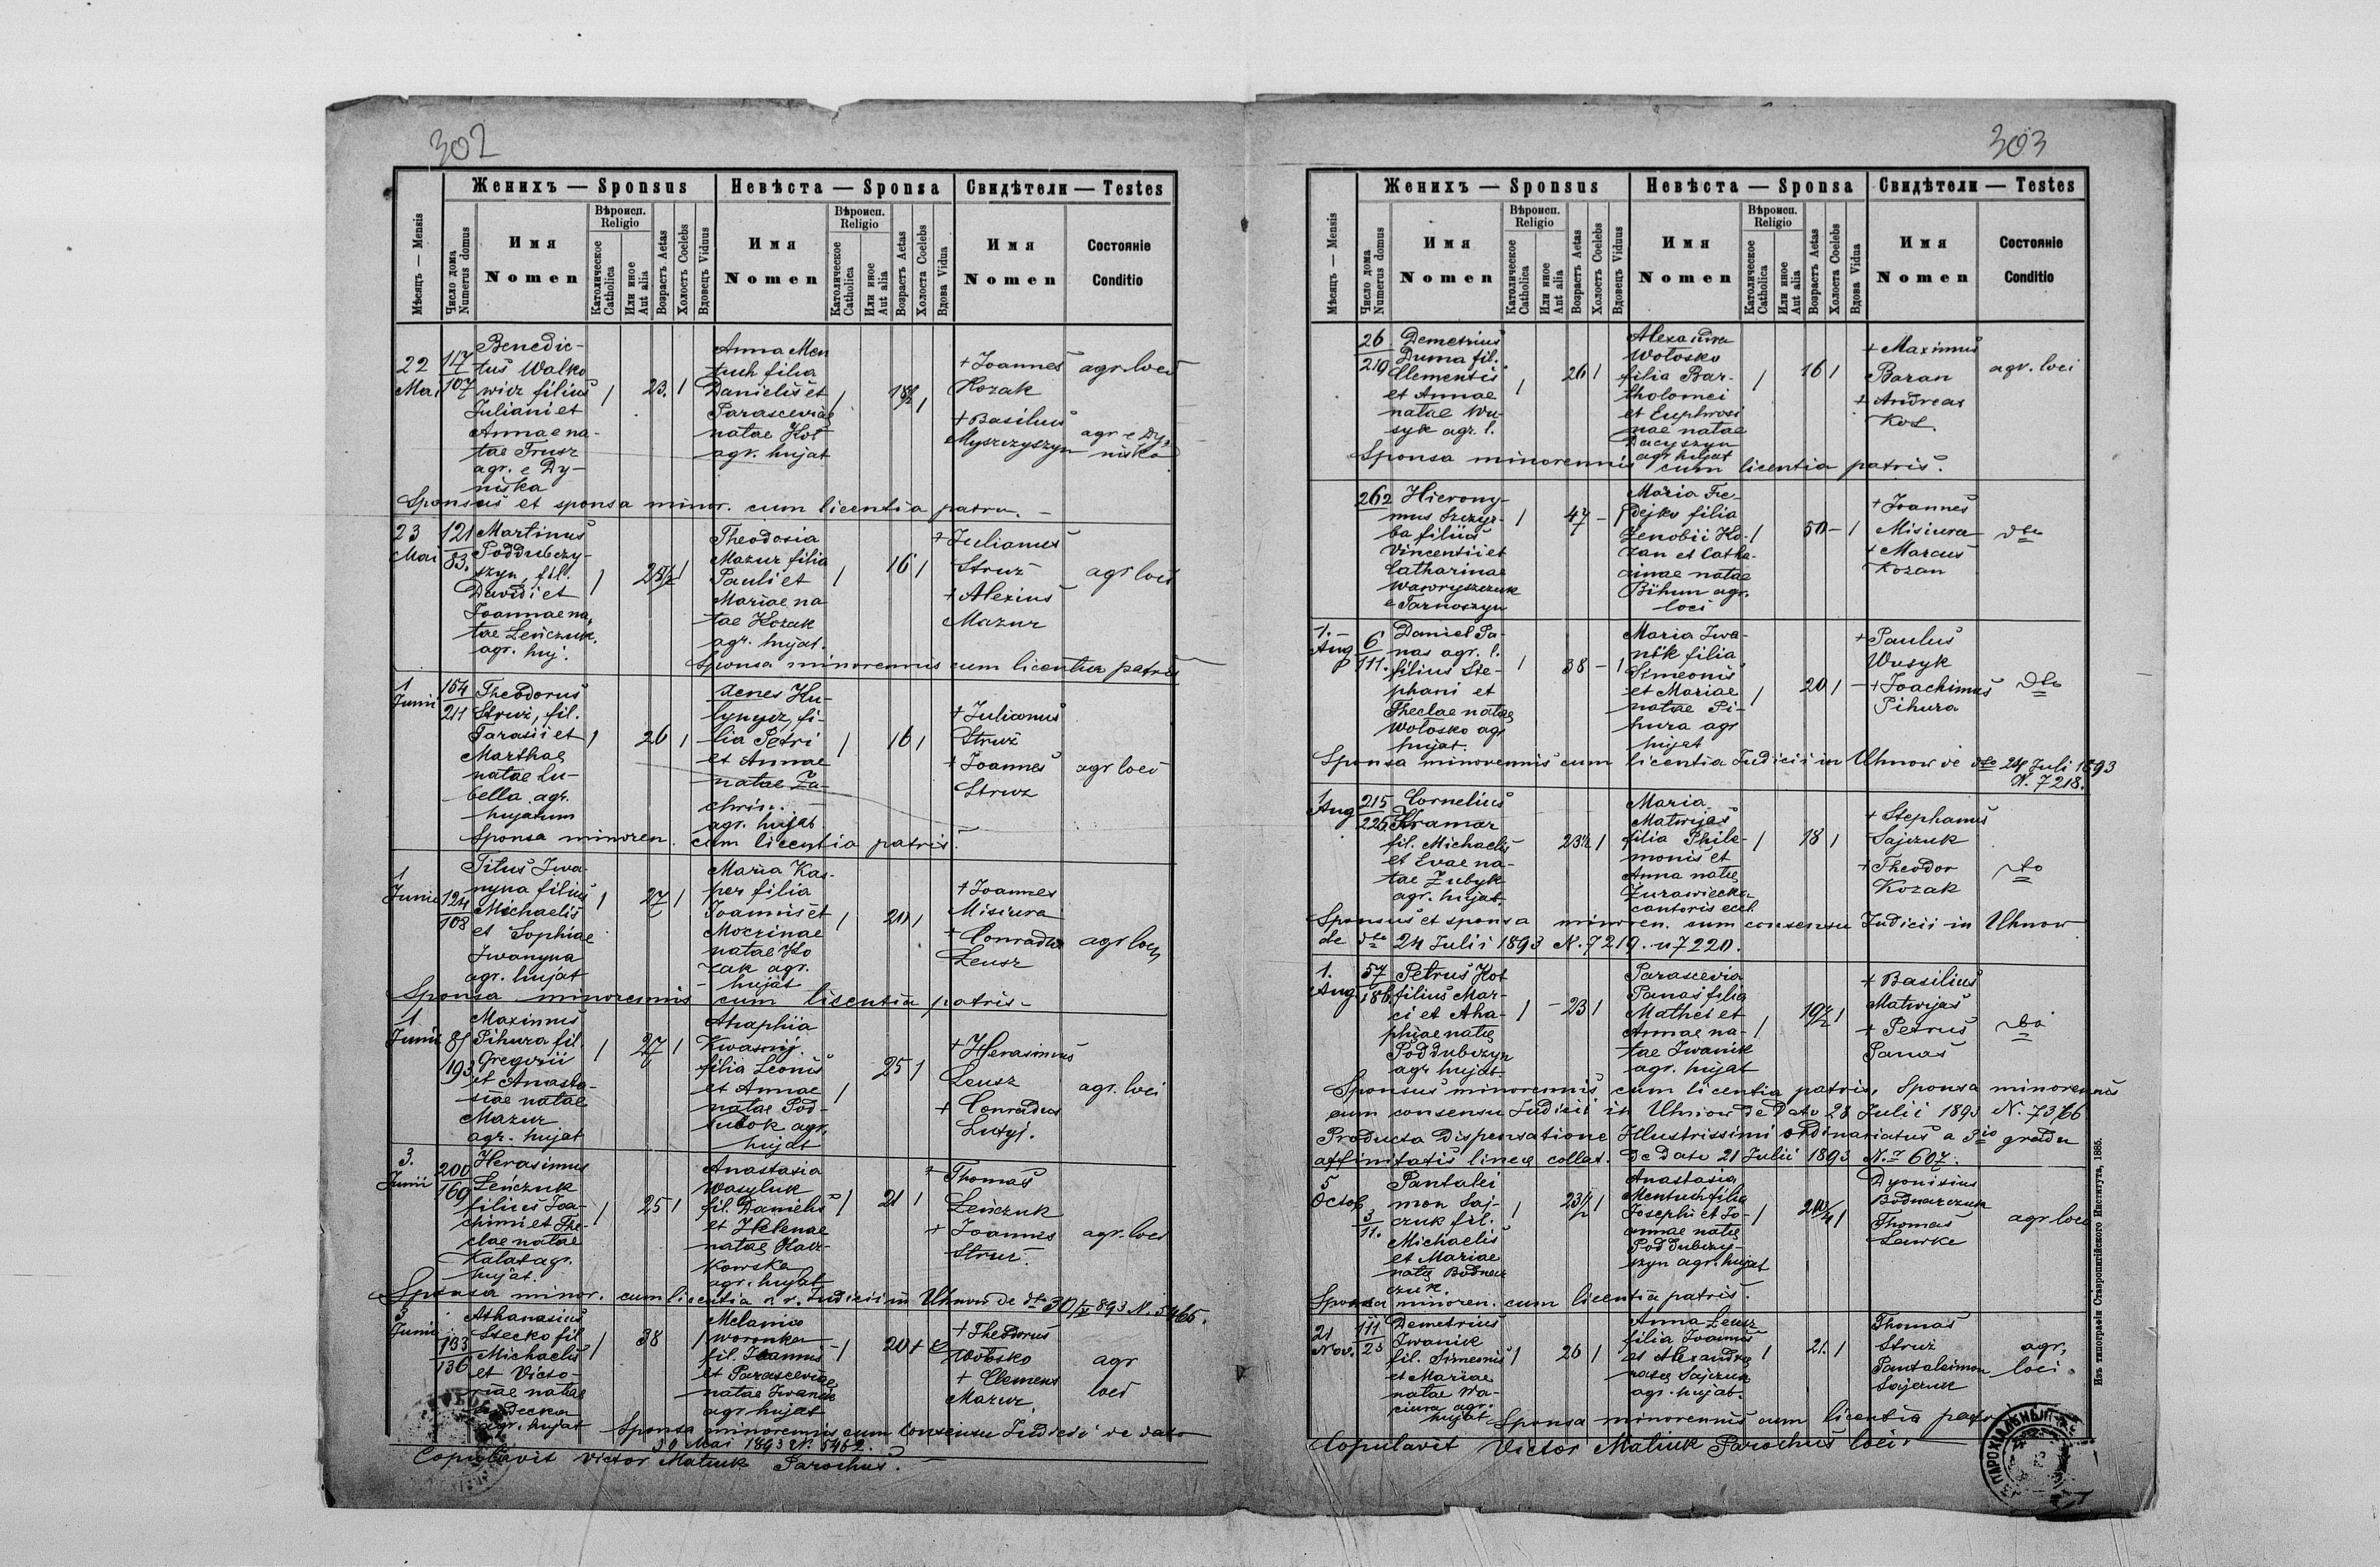 302
Женихъ — Sponsus
Невѣста — Sponsa
Свидѣтели — Testes
Мѣсяцъ — Mensis
Число дома
Numerus domus
Имя
Nomen
Вѣроисп.
Religio
Католическое
Catholica
Или иное
Aut alia
Возрастъ Aetas
Холостъ Coelebs
Вдовецъ Viduus
Имя
Nomen
Вѣроисп.
Religio
Католическое
Catholica
Или иное
Aut alia
Возрастъ Aetas
Холоста Coelebs
Вдова Vidua
Имя
Nomen
Состояніе
Conditio
22
Mai
117
107
Benedic-
tus Walko
wicz filius
Juliani et
Annae na-
tae Trusz
agr. e Dy-
niska
1 23. 1
Anna Men
tuch filia
Danielis et
Parasceviae
natae Kot
agr. hujat
1 18½ 1
+ Joannes
Kozak
+ Basilius
Myszczyszyn
agr. loci
agr e Dy-
niska
Sponsus et sponsa minor. cum licentia patru. —
23
Mai
121
83.
Martinus
Poddubczy-
szyn, fil.
Davidi et
Joannae na-
tae Leńczuk.
agr. huj.
1 1
Theodosia
Mazur filia
Pauli et
Mariae na
tae Kozak
agr. hujat.
1 16 1
+ Julianus
Strus
+ Alexius
Mazur
agr loci
Sponsa minorennis cum licentia patris
1
Junii
154
211
Theodorus
Strus, fil.
Tarasii et
Marthae
natae Lu-
bella agr.
hujatum
1 26 1
Xenes Hu-
lynycz, fi-
lia Petri
et Annae
natae Za-
chri..
agr. hujat
1 16 1
+ Julianus
Strus
+ Joannes
Strus
agr loci
Sponsa minoren. cum licentia patris.
1
Junii
124
108
Titus Iwa-
nyna filius
Michaelis
et Sophiae
Iwanyna
agr. hujat
1 27 1
Maria Kas-
per filia
Joannis et
Mocrinae
natae Ko
zak agr.
hujat
1 20 1
+ Joannes
Misiura
+ Conradus
Leusz
agr loci
Sponsa minorennis cum licentia patris —
1
Junii
81
193
Maximus
Pihura fil
Gregorii
et Anasta-
siae natae
Mazur
agr. hujat
1 27 1
Ahaphia
Kwasnij
filia Leonis
et Annae
natae Pod-
lubok agr.
hujat
1 25 1
+ Herasimus
Leusz
+ Conradus
Lutyj.
agr. loci
3.
Junii
200
169
Herasimus
Leńczuk
filius Joa-
chimi et The-
clae natae
Kalat agr.
hujat.
1 25 1
Anastasia
Wasyluk
fil. Danielis
et Helenae
natae Harz-
kowska
agr. hujat
1 21 1
+ Thomas
Leńczuk
+ Joannes
Strus.
agr. loci
Sponsa minor. cum licentia c. r. Judicii in Uhnow de dto 30/V 893 N. 5465.
3
Junii
133
136
Athanasius
Stecko fil
Michaelis
et Victo-
riae natae
agr. hujat
1 38 1
Melania
Woronka
fil. Joannis
et Parasceviae
natae Iwanik
agr hujat
1 20
+ Theodorus
Wołosko
+ Clemens
Mazur.
agr
loci
Sponsa minorennis cum consensu Judicii de dato
30 Mai 1893 N. 5462.
Copulavit Victor Matiuk Parochus. —
303
Женихъ — Sponsus
Невѣста — Sponsa
Свидѣтели — Testes
Мѣсяцъ — Mensis
Число дома
Numerus domus
Имя
Nomen
Вѣроисп.
Religio
Католическое
Catholica
Или иное
Aut alia
Возрастъ Aetas
Холостъ Coelebs
Вдовецъ Viduus
Имя
Nomen
Вѣроисп.
Religio
Католическое
Catholica
Или иное
Aut alia
Возрастъ Aetas
Холоста Coelebs
Вдова Vidua
Имя
Nomen
Состояніе
Conditio
26
219
Demetrius
Duma fil.
Clementis
et Annae
natae Wu-
syk agr. l.
1 26 1
Alexandra
Wołosko
filia Bar-
tholomei
et Euphrosi
nae natae
Dacyszyn
agr hujat
1 16 1
+ Maximus
Baran
+ Andreas
Kot.
agr. loci
Sponsa minorennis cum licentia patris.
262
Hierony-
mus Szczyr-
ba filius
Vincentii et
Catharinae
Wawryszczuk
e Tarnoszyn
1 47 — 1
Maria Fe-
dejko filia
Zenobii Ko-
zan et Catha-
rinae natae
Bihun agr.
loci
1 50 — 1
+ Joannes
Misiura
+ Marcus
Kozan
dto
1. —
Aug
6
111.
Daniel Pa-
nas agr. l.
filius Ste-
phani et
Theclae natae
Wołosko agr
hujat.
1 38 — 1
Maria Iwa-
nik filia
Simeonis
et Mariae
natae Pi-
hura agr
hujat
1 20 1
+ Paulus
Wusyk
+ Joachimus
Pihura
dto
Sponsa minorennis cum licentia Judicii in Uhnow de dto 24 Juli 1893
N. 7218.
1
Aug
215
225
Cornelius
Kramar
fil. Michaelis
et Evae na-
tae Zubyk
agr. hujat.
23½ 1
Maria
Matwijas
filia Phile-
monis et
Anna natae
Zurawiecka
cantoris eccl.
1 18 1
+ Stephanus
Sajczuk
+ Theodor
Kozak
dto
Sponsus et sponsa minoren. cum consensu Judicii in Uhnow
de dto 24 Julii 1893 N. 7219. u 7220.
1.
Aug
57
186
Petrus Kot
filius Mar-
ci et Aha-
phiae natae
Poddubczyn
agr hujat.
1 — 23 1
Parascevia
Panas filia
Mathei et
Annae na-
tae Iwanik
agr. hujat
1 19½ 1
+ Basilius
Matwijas
+ Petrus
Panas
dto
Sponsus minorennis cum licentia patris, Sponsa minorennis
cum consensu Judicii in Uhnow de dato 28 Julii 1893 N. 7366
Producta Dispensatione Illustrissimi ordinariatus a 3io gradu
affinitatis lineae collat. de dato 21 Julii 1893 N. 607.
5
Octob
3
11.
Pantalei
mon Saj-
czuk fil.
Michaelis
et Mariae
natae Bodnar
czuk.
1 23½ 1
Anastasia
Mentuch filia
Josephi et Jo-
annae natae
Poddubczy-
szyn agr. hujat
1 1
Dyonisius
Bodnarczuk
Thomas
Lewke
agr loci
Sponsa minoren. cum licentia patris.
21
Nov.
111
25
Demetrius
Iwanik
fil. Simeonis
et Mariae
natae Wa-
ciura agr.
hujat
1 26 1
Anna Leusz
filia Joannis
et Alexandrae
natae Sajczuk
agr. hujat.
1 21. 1
Thomas
Strus
Pantaleimon
Sajczuk
agr,
loci.
Sponsa minorennis cum licentia patris
Copulavit Victor Matiuk Parochus loci.
Изъ типографіи Ставропигійского Института, 1885.